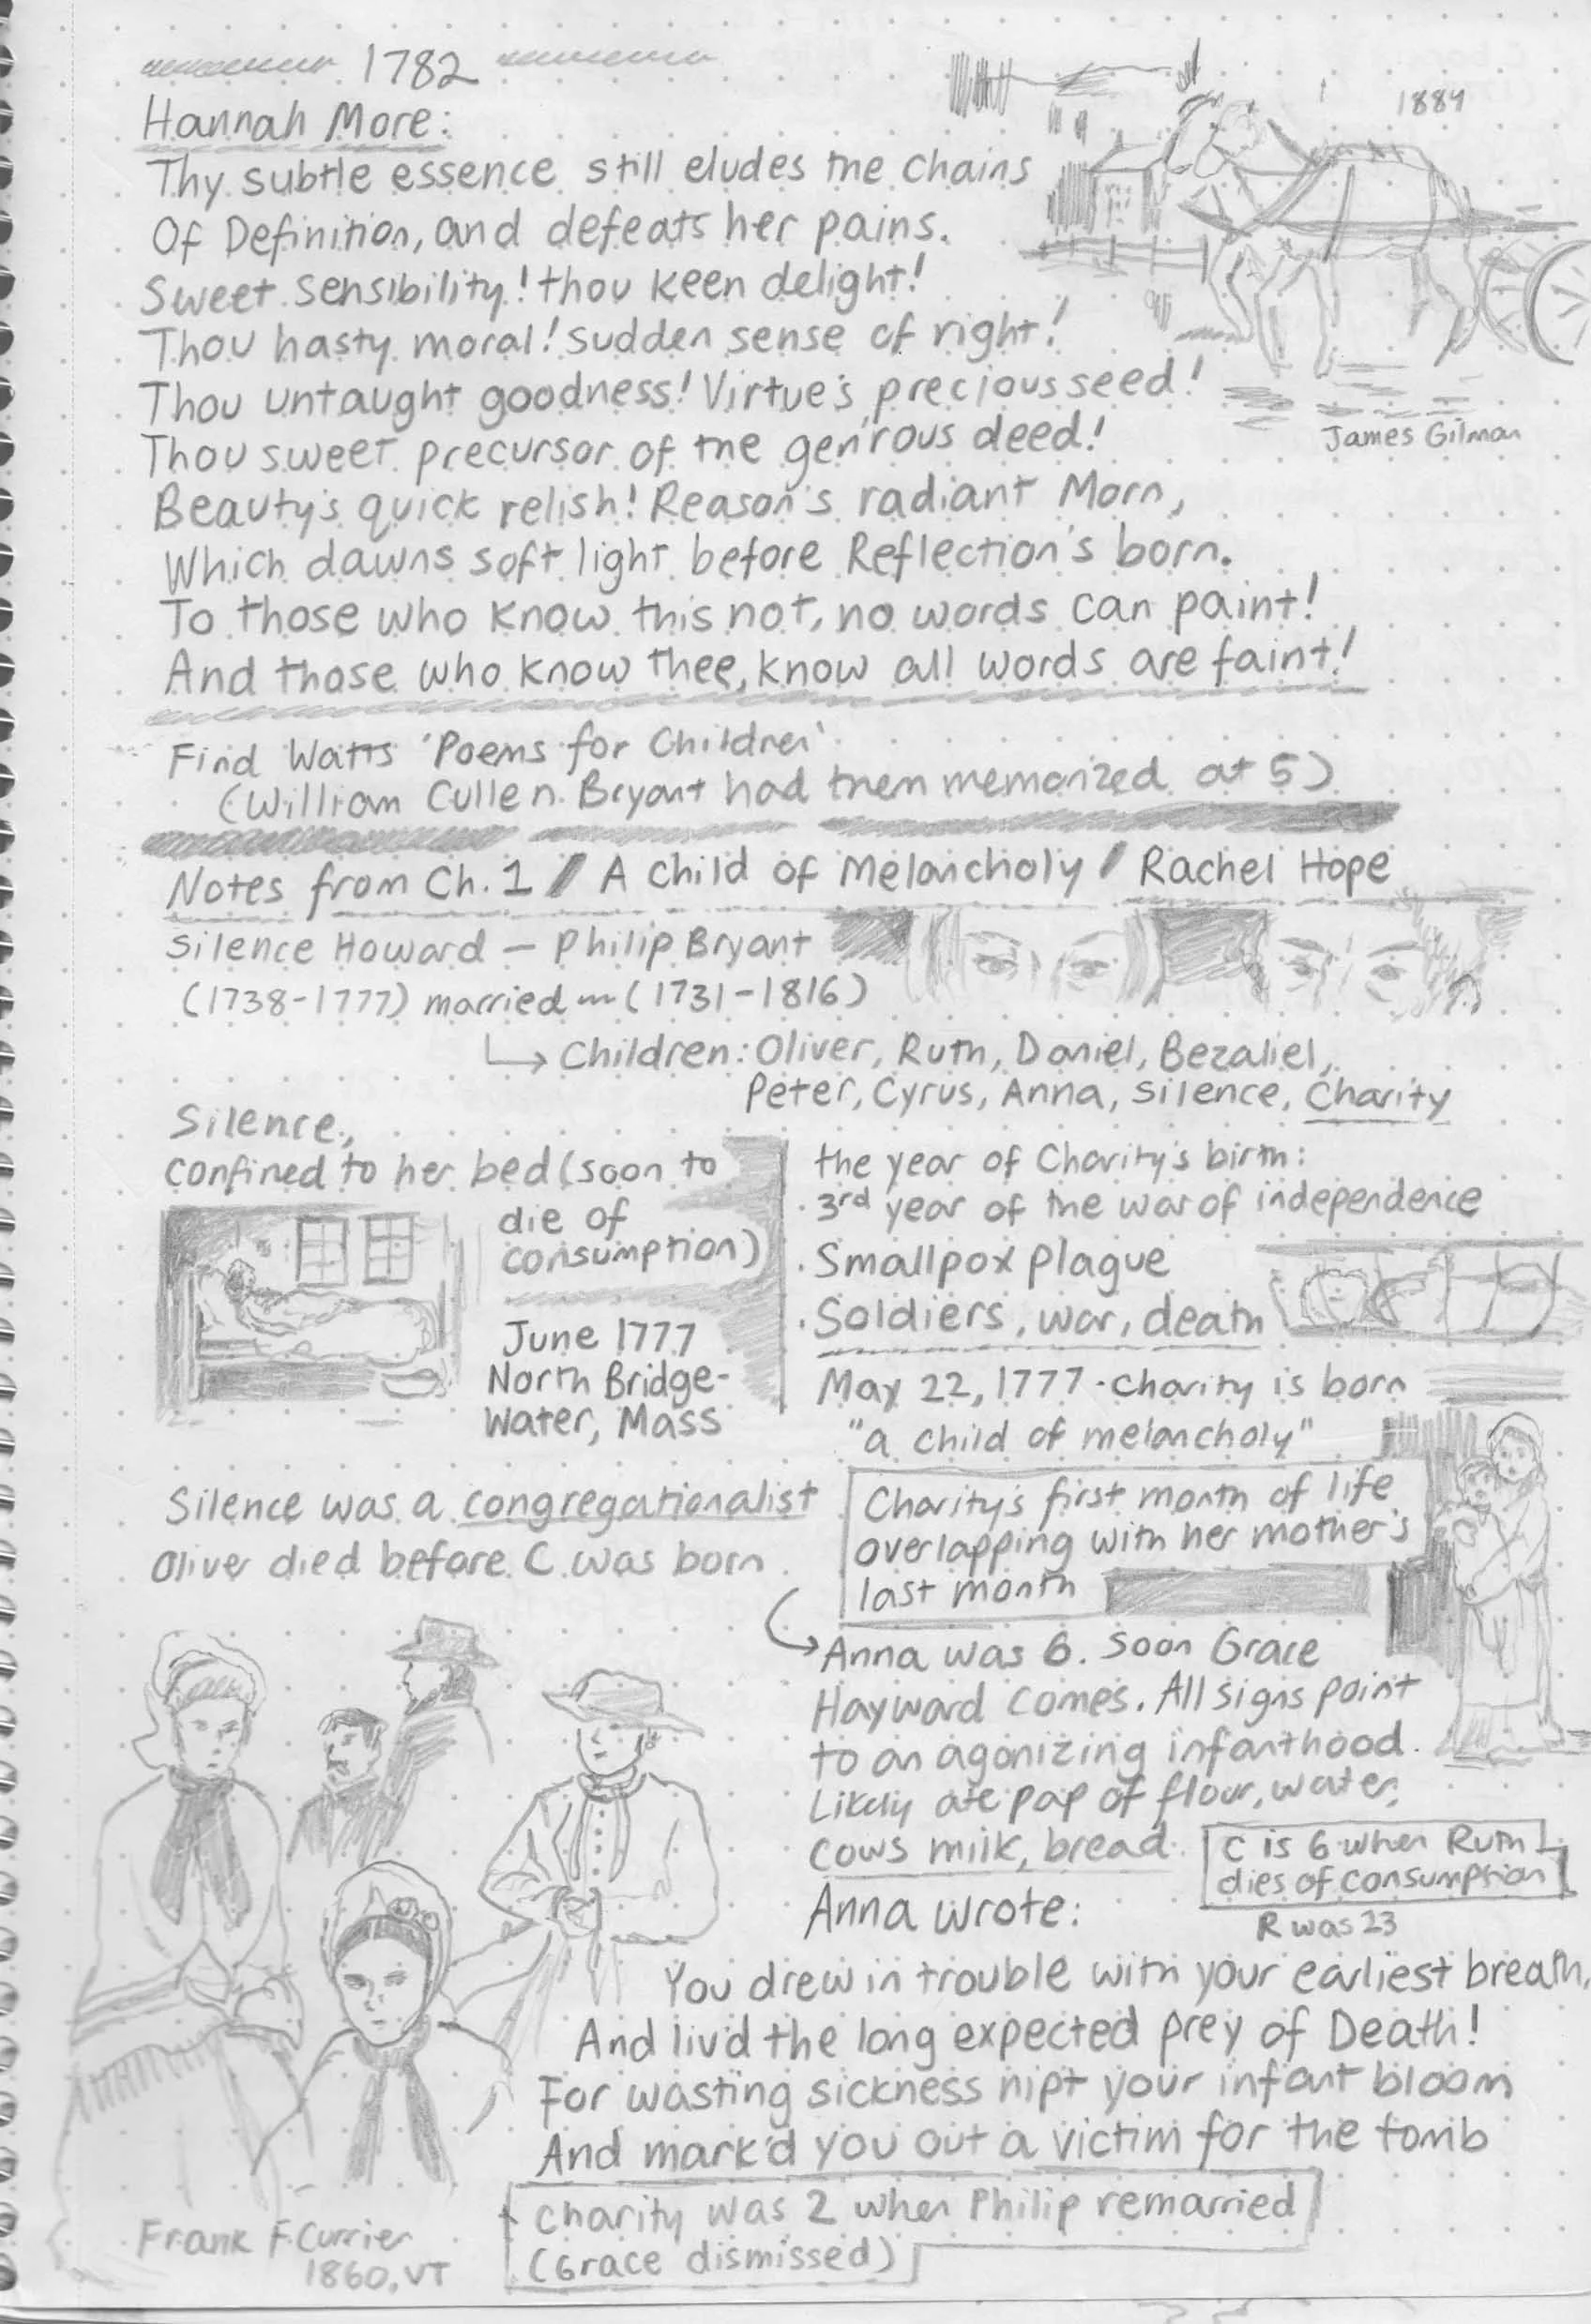 1782
1884
Hannah More:
Thy subtle essence still eludes the Chains
Of Definition, and defeats her pains.
Sweet Sensibility! thou keen delight!
Thou hasty moral! sudden sense of right!
Thou untaught goodness! Virtue's precious seed!
Thou sweet precursor of the gen'rous deed!
James Gilman
Beauty's quick relish! Reason's radiant Morn,
Which dawns soft light before Reflection's born.
To those who know this not, no words can paint!
And those who know thee, know all words are faint!
Find Watts 'Poems for Children'
(William Cullen Bryant had them memorized at 5)
Notes from Ch. 1 / A Child of Melancholy / Rachel Hope
Silence Howard – Philip Bryant
(1738-1777) married (1731-1816)
Children: Oliver, Ruth, Daniel, Bezaliel,
Peter, Cyrus, Anna, Silence, Charity
Silence,
confined to her bed (soon to
die of
consumption)
June 1777
North Bridge-
water, Mass
the year of Charity's birth:
· 3rd year of the war of independence
· Smallpox plague
· Soldiers, war, death
May 22, 1777 · Charity is born
"a child of melancholy"
Silence was a congregationalist
Oliver died before C was born
Charity's first month of life
overlapping with her mother's
last month
Anna was 6. Soon Grace
Hayward comes. All signs point
to an agonizing infanthood.
Likely ate pap of flour, water,
cows milk, bread.
C is 6 when Ruth
dies of consumption
R was 23
Anna wrote:
You drew in trouble with your earliest breath,
And liv'd the long expected prey of Death!
For wasting sickness nipt your infant bloom
And mark'd you out a victim for the tomb
Charity was 2 when Philip remarried
(Grace dismissed)
Frank F. Currier
1860, VT